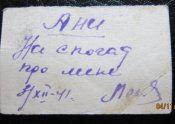 Ані
На спогад
про мене
XII-41.
04/11